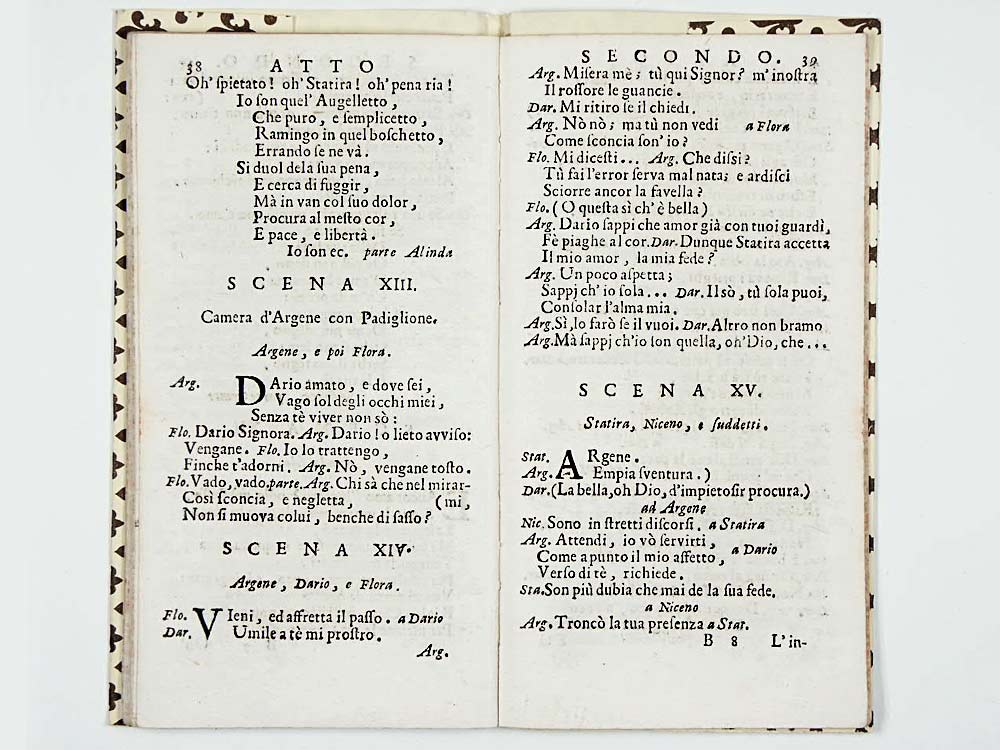 38 ATTO
Oh' ſpietato! oh' Statira! oh' pena ria!
Io ſon quel' Augelletto,
Che puro, e ſemplicetto,
Ramingo in quel boſchetto,
Errando ſe ne và.
Si duol dela ſua pena,
E cerca di fuggir,
Mà in van col ſuo dolor,
Procura al meſto cor,
E pace, e libertà.
Io ſon ec. parte Alinda
SCENA XIII.
Camera d'Argene con Padiglione.
Argene, e poi Flora.
Arg. DArio amato, e dove ſei,
Vago ſol degli occhi miei,
Senza tè viver non sò:
Flo. Dario Signora. Arg. Dario! o lieto avviſo:
Vengane. Flo. Io lo trattengo,
Finche t'adorni. Arg. Nò, vengane toſto.
Flo. Vado, vado. parte. Arg. Chi sà che nel mirar-
Così ſconcia, e negletta, (mi,
Non ſi muova colui, benche di ſaſſo?
SCENA XIV.
Argene, Dario, e Flora.
Flo. VIeni, ed affretta il paſſo. a Dario
Dar. Umile a tè mi proſtro.
Arg.
SECONDO. 39
Arg. Miſera mè; tù qui Signor? m' inoſtra
Il roſſore le guancie.
Dar. Mi ritiro ſe il chiedi.
Arg. Nò nò; ma tù non vedi a Flora
Come ſconcia ſon' io?
Flo. Mi diceſti... Arg. Che diſſi?
Tù fai l'error ſerva mal nata; e ardiſci
Sciorre ancor la favella?
Flo. (O queſta sì ch' è bella)
Arg. Dario ſappi che amor già con tuoi guardì,
Fè piaghe al cor. Dar. Dunque Statira accetta
Il mio amor, la mia fede?
Arg. Un poco aſpetta;
Sappj ch' io ſola... Dar. Il sò, tù ſola puoi,
Conſolar l'alma mia.
Arg. Sì, lo farò ſe il vuoi. Dar. Altro non bramo
Arg. Mà ſappj ch'io ſon quella, oh' Dio, che...
SCENA XV.
Statira, Niceno, e ſuddetti.
Stat. ARgene.
Arg. Empia ſventura.)
Dar. (La bella, oh Dio, d'impietoſir procura.)
ad Argene
Nic. Sono in ſtretti diſcorſi. a Statira
Arg. Attendi, io vò ſervirti,
Come a punto il mio affetto, a Dario
Verſo di tè, richiede.
Sta. Son più dubia che mai de la ſua fede.
a Niceno
Arg. Troncò la tua preſenza a Stat.
B 8 L'in-